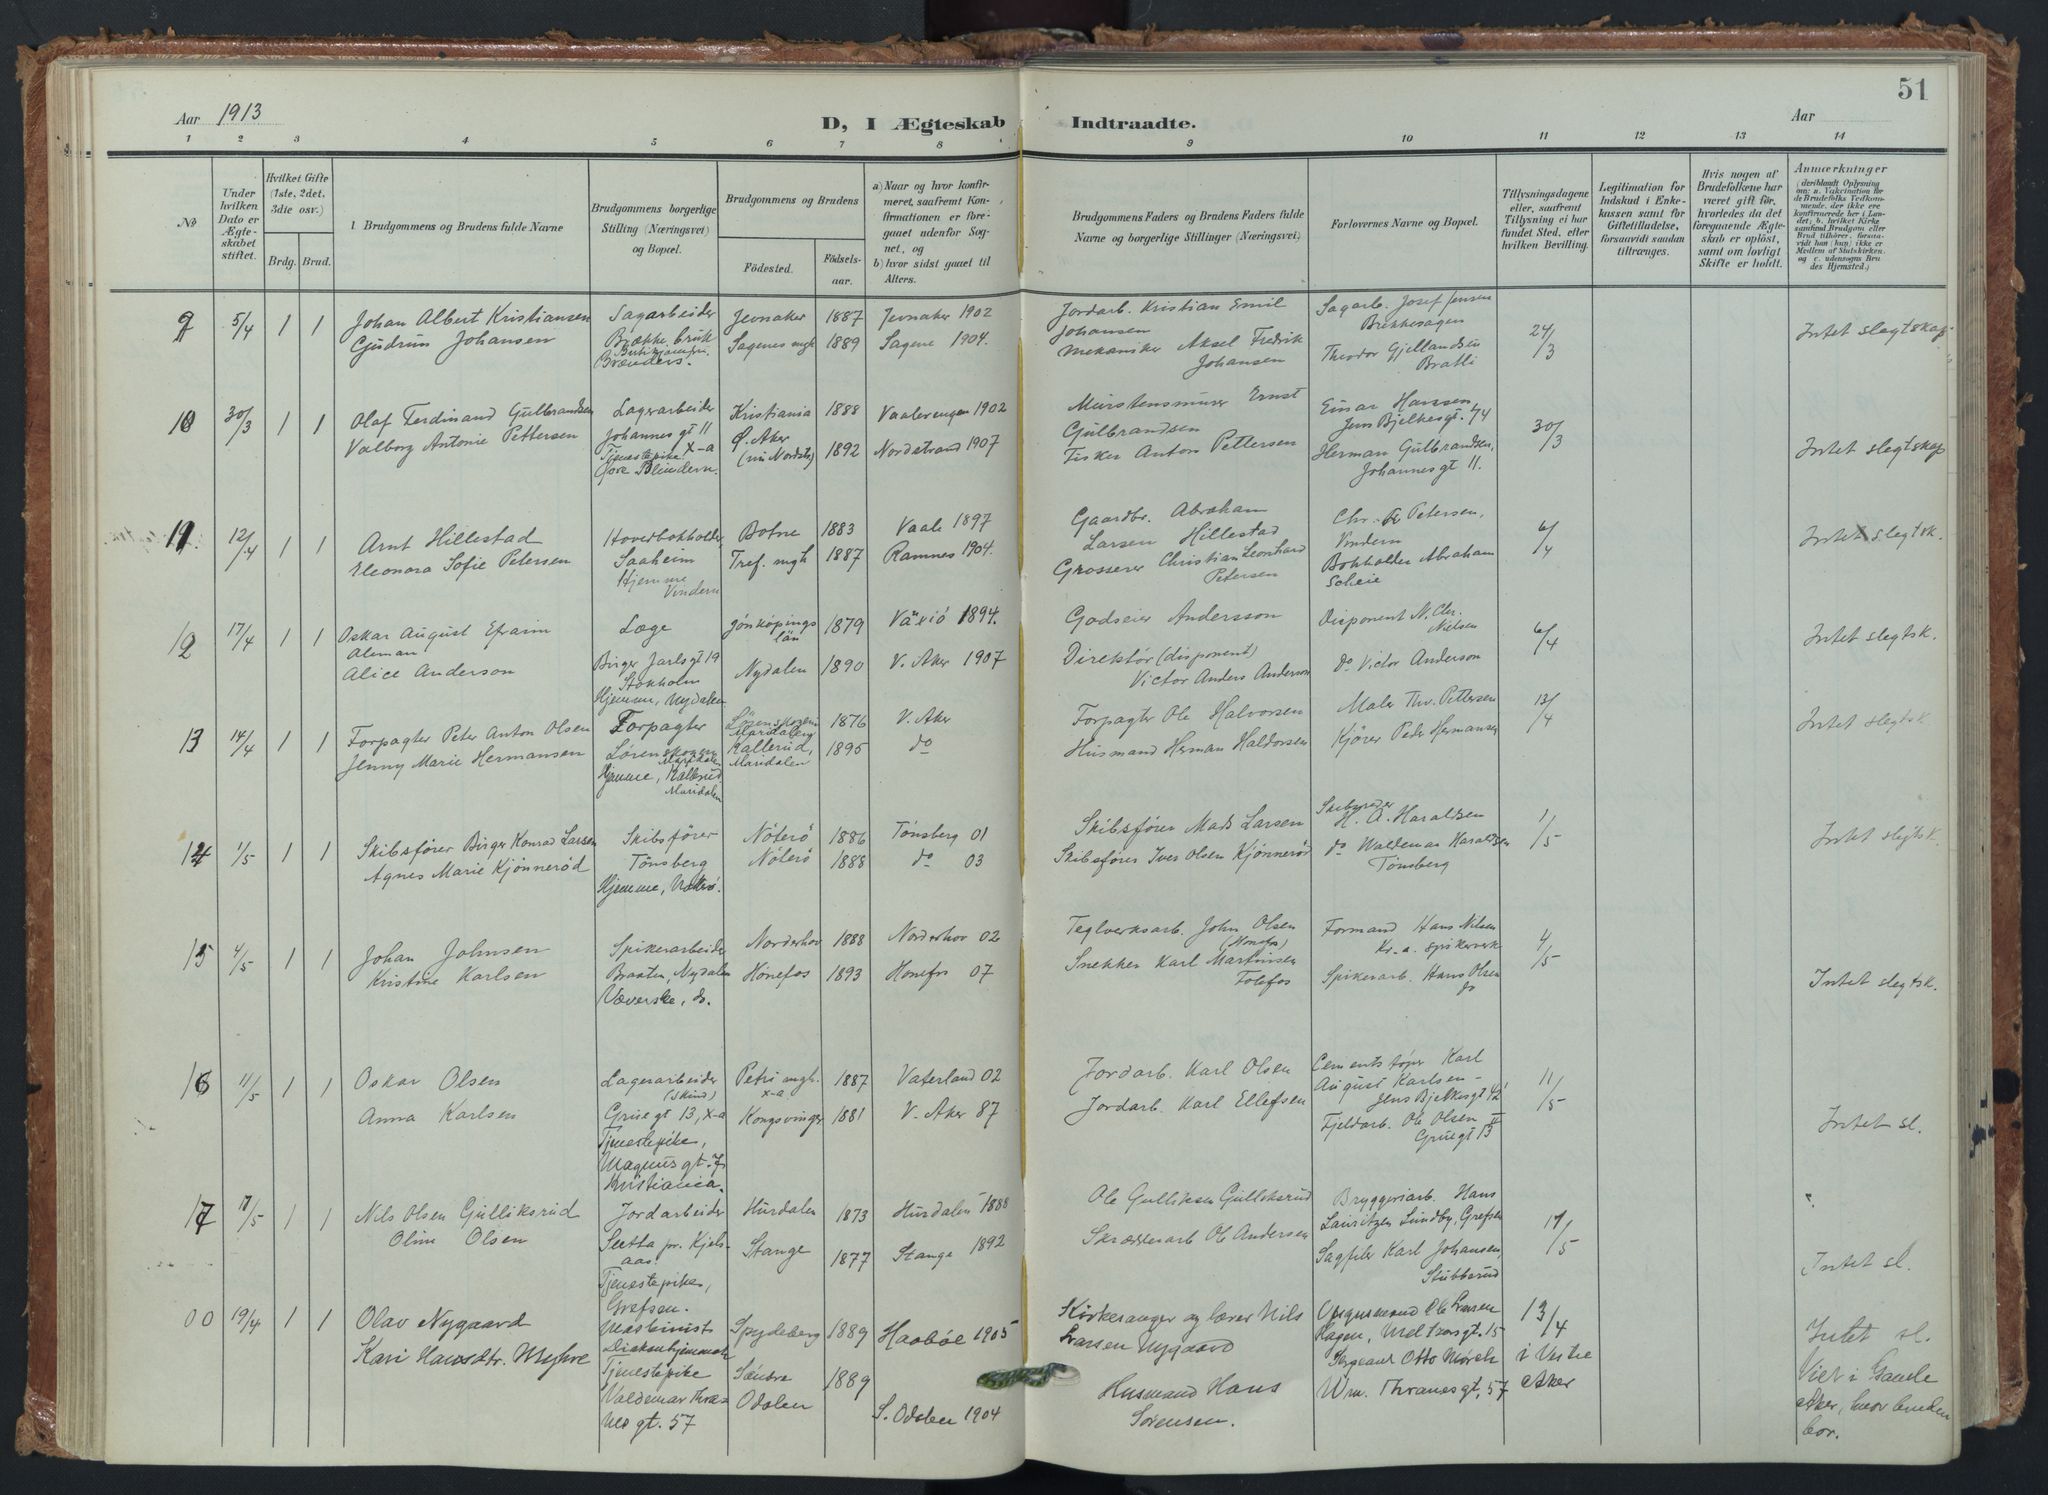 51
Aar 1913
D, I Ægteskab Indtraadte.
Aar
1 2 3 4 5 6 7 8 9 10 11 12 13 14
No
Under hvilken Dato er Ægteskabet stiftet.
Hvilket Gifte (1ste, 2det, 3die osv.)
Brdg. Brud.
Brudgommens og Brudens fulde Navne
Brudgommens borgerlige Stilling (Næringsvei) og Bopæl.
Brudgommens og Brudens
Födested. Födselsaar.
a) Naar og hvor konfirmeret, saafremt Konfirmationen er foregaaet udenfor Sognet, og
b) hvor sidst gaaet til Alters.
Brudgommens Faders og Brudens Faders fulde Navne og borgerlige Stillinger (Næringsvei)
Forlovernes Navne og Bopæl.
Tillysningsdagene eller, saafremt Tillysning ei har fundet Sted, efter hvilken Bevilling.
Legitimation for Indskud i Enkekassen samt for Giftetilladelse, forsaavidt saadan tiltrænges.
Hvis nogen af Brudefolkene har været gift før, hvorledes da det foregaaende Ægteskab er oplöst, samt om lovligt Skifte er holdt.
Anmærkninger
(deriblandt Oplysning om: a. Vakcination for de Brudefolks Vedkommende, der ikke ere konfirmerede her i Landet; b. hvilket Kirkesamfund Brudgom eller Brud tilhörer, forsaavidt han (hun) ikke er Medlem af Statskirken, og c. udensogns Brudes Hjemsted.)
9 5/4 1 1 Johan Albert Kristiansen
Gudrun Johansen
Sagarbeider
Brække bruk
Jevnaker 1887 Jevnaker 1902
Sagenes mgh 1889 Sagene 1904.
Jordarb. Kristian Emil
Johansen
Mekaniker Aksel Fredrik
Johansen
Sagarb. Josef Jensen
Brekkesagen
Theodor Gjellandsen
Bratli
24/3
Intet slegtskap
10 30/3 1 1 Olaf Ferdinand Gulbrandsen
Valborg Antonie Pettersen
Lagerarbeider
Johannes gt 11
Tjenestepike X-a
Øvre Blindern.
Kristiania 1888 Vaalerengen 1902
Ø. Aker
(nu Nordstr.) 1892 Nordstrand 1907
Murstensmurer Ernst
Gulbrandsen
Fisker Anton Pettersen
Einar Hansen
Jens Bjelkesgt. 74
Herman Gulbrandsen,
Johannesgt 11.
30/3
Intet slegtskap
11. 12/4 1 1 Arnt Hillestad
Eleonora Sofie Petersen
Hovedbokholder,
Saaheim
Hjemme
Vindern
Botne 1883 Vaale 1897
Tref. mgh 1887 Ramnes 1904.
Gaardbr. Abraham
Larsen Hillestad
Grosserer Christian Leonhard
Petersen
Chr. Fr Petersen,
Vindern
Bokholder Abraham
Scheie
6/4
Intet slegtsk.
12 17/4 1 1 Oskar August Efraim
Aleman
Alice Anderson
Læge
Birger Jarlsgt 19
Stokholm
Hjemme, Nydalen
Jönköpings
län 1879 Växiö 1894.
Nydalen 1890 V. Aker 1907
Godseier Andersson
Direktör (disponent)
Victor Anders Anderson
Disponent N. Chr.
Nielsen
do Victor Anderson
6/4
Intet slegtsk.
13 14/4 1 1 Forpagter Peter Anton Olsen
Jenny Marie Hermansen
Forpagter
Lørenskogen
Maridalen
Hjemme, Kallerud
Maridalen
Lörenskogen
Maridalen 1876 V. Aker
Kallerud,
Maridalen 1895 do
Forpagter Ole Halvorsen
Husmand Herman Haldorsen
Maler Thv. Pettersen
Kjörer Peder Hermansen
13/4
Intet slegtsk.
14 1/5 1 1 Skibsförer Birger Konrad Larsen
Agnes Marie Kjønnerød
Skibsförer
Tönsberg
Hjemme, Nøtterø.
Nöterö 1886 Tønsberg 01
Nöterö 1888 do 03
Skibsförer Mads Larsen
Skibsförer Iver Olsen Kjønnerör
Skibsreder
H. A. Haraldsen
do Waldemar Haraldsen
Tönsberg
1/5
Intet slegtsk.
15 4/5 1 1 Johan Johnsen
Kristine Karlsen
Spikerarbeider
Braaten, Nydalen
Væverske, do.
Norderhov 1888 Norderhov 02
Hönefos 1893 Honefos 07
Teglverksarb. John Olsen
(Honefos)
Snekker Karl Martinsen
Tolefos
Formand Hans Nilsen
Kr.a. spikerverk
Spikerarb. Hans Olsen
do
4/5
Intet slegtsk.
16 11/5 1 1 Oskar Olsen
Anna Karlsen
Lagerarbeider
(Skind)
Grüse gt 13, X-a
Tjenestepike,
Magnus gt. 7
Kristiania.
Petri mgh.
X-a. 1887 Vaterland 02
Kongsvinger 1881 V. Aker 87
Jordarb. Karl Olsen
Jordarb. Karl Ellefsen
Cementstøper Karl
August Karlsen -
Jens Bjelkesgt 42
Fjeldarb. Ole Olsen
Gruegt 13
11/5
Intet sl.
17 18/5 1 1 Nils Olsen Gulliksrud
Oline Olsen
Jordarbeider
Sætta pr. Kjelsaas.
Tjenestepike,
Grefsen.
Hurdalen 1873 Hurdalen 1888
Stange 1877 Stange 1892
Ole Gulliksen Gulliksrud
Skrædderarb Ole Andersen
Bryggeriarb. Hans
Lauritzen Lundby, Grefsen
Sagfiler Karl Johansen,
Stubberud
17/5
Intet sl.
00 19/4 1 1 Olav Nygaard
Kari Hansdtr. Myhre
Maskinist
Diakonhjemmet
Tjenestepike
Valdemar Thranes gt. 57
Spydeberg 1889 Haaböl 1905
Söndre
Odalen 1889 S. Odalen 1904
Kirkesanger og lærer Nils
Larsen Nygaard
Husmand Hans
Sörensen.
Opsynsmand Ole Larsen
Hagen, Meltzersgt. 15
Sergeant Otto Mørch
Wm. Thranesgt. 57
13/4
i Vestre
Aker
Intet sl.
Viet i Gamle
Aker, hvor bruden
bor.